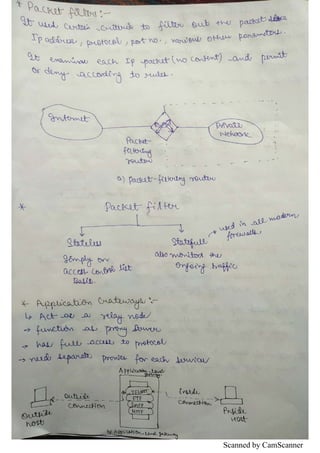 * Packet filter :-
It used certain criteria to filter out the packet like
Ip address, protocol, port no., various other parameters.
It examine each Ip packet (no content) and permit
or deny according to rules.
Internet
Private
Network
Packet
filtering
router
a) packet-filtering router
* Packet filter
Stateless
Statefull → used in all modern
firewalls
Simply on
access control list
also monitor the
ongoing traffic
* Application Gateways :-
↳ Act as a relay node
→ function as proxy server
→ has full access to protocol
→ need separate proxies for each service
Application-level
gateway
Outside
connection
TELNET
FTP
SMTP
HTTP
Inside
connection
Outside
host
Inside
Host
b) Application-level gateway
Scanned by CamScanner